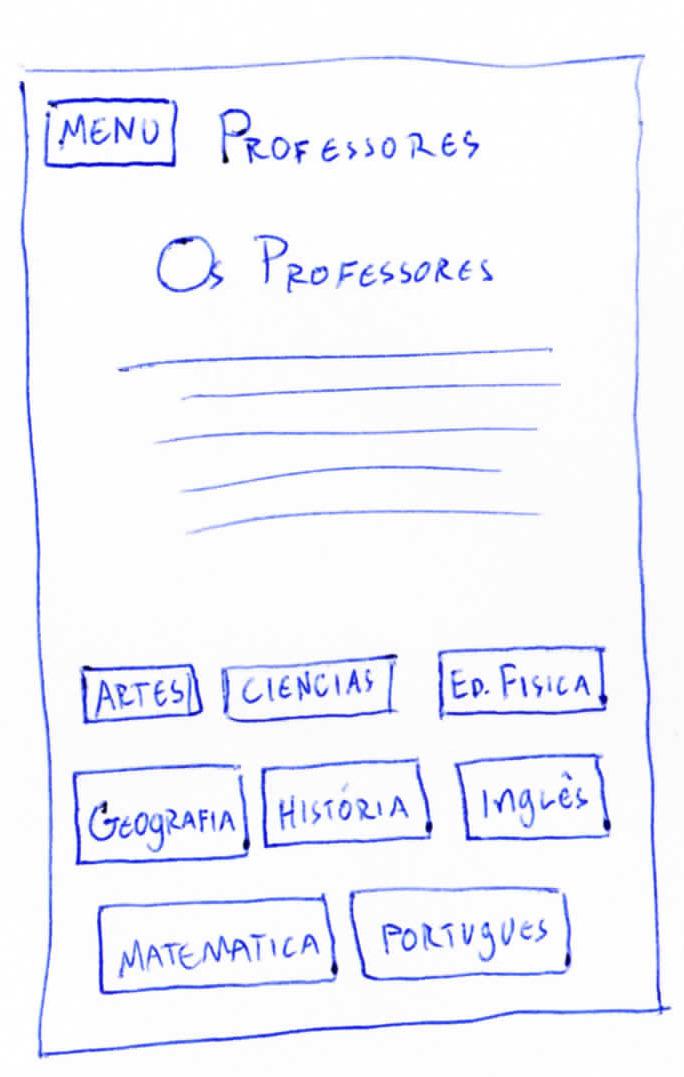 MENU PROFESSORES
OS PROFESSORES
ARTES CIENCIAS ED. FISICA
GEOGRAFIA HISTÓRIA INGLÊS
MATEMATICA PORTUGUES